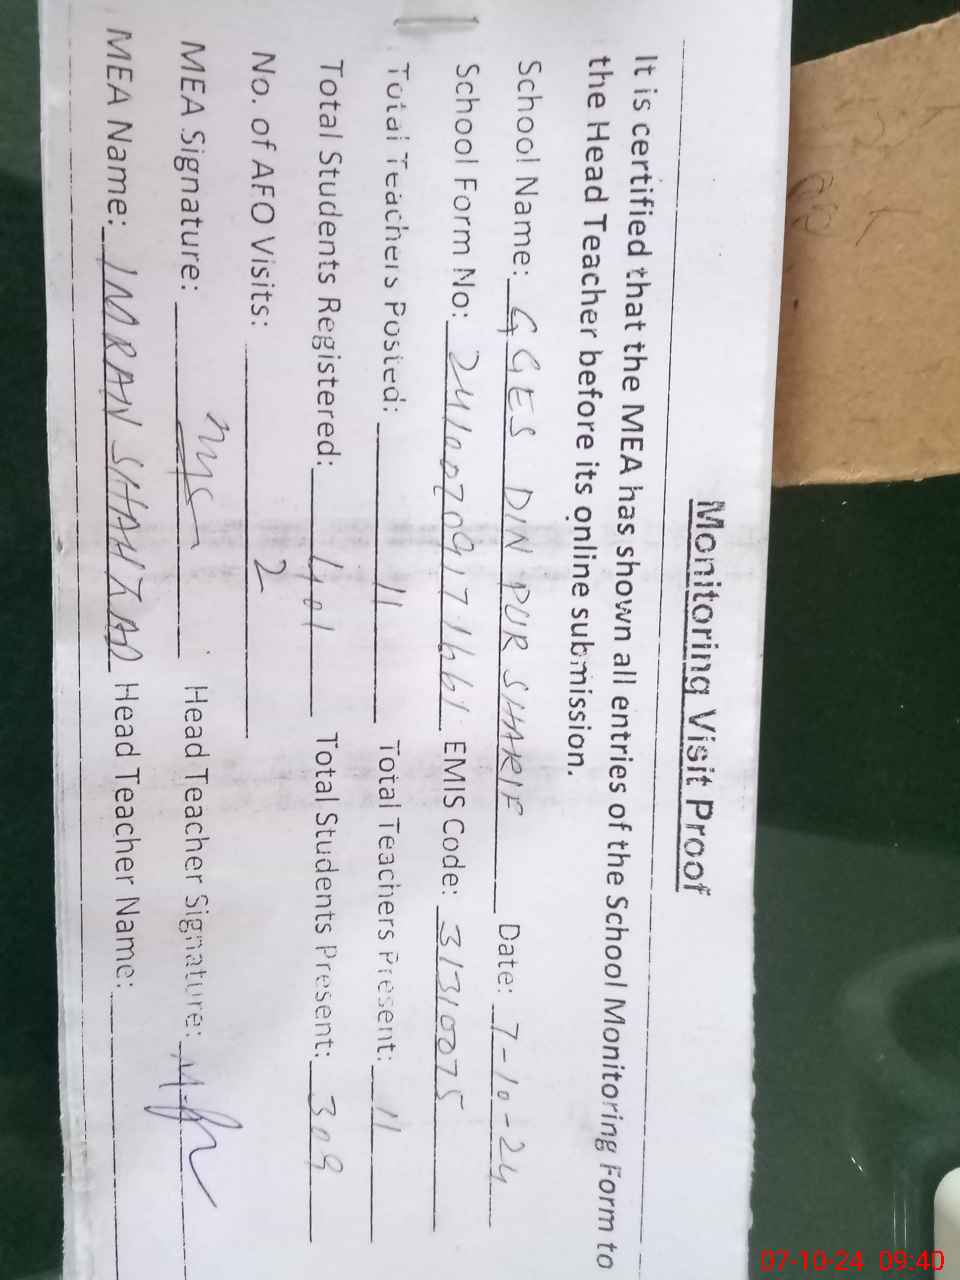 Monitoring Visit Proof
It is certified that the MEA has shown all entries of the School Monitoring Form to
the Head Teacher before its online submission.
School Name: GGES DIN PUR SHARIF Date: 7-10-24
School Form No: 24100709171661 EMIS Code: 31310075
Total Teachers Posted: 11 Total Teachers Present: 11
Total Students Registered: 401 Total Students Present: 309
No. of AEO Visits: 2
MEA Signature: Head Teacher Signature:
MEA Name: IMRAN SHAHZAD Head Teacher Name:
07-10-24 09:40